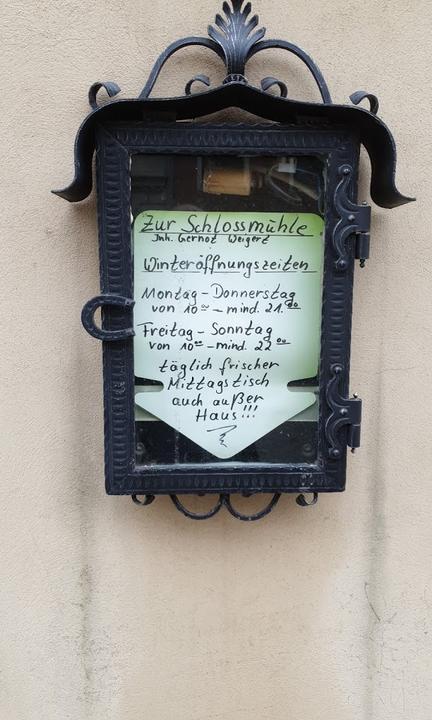 Zur Schlossmühle
Inh. Gernot Weigert
Winteröffnungszeiten
Montag - Donnerstag
von 10⁰⁰ - mind. 21.⁰⁰
Freitag - Sonntag
von 10⁰⁰ - mind. 22⁰⁰
täglich frischer
Mittagstisch
auch außer
Haus!!!